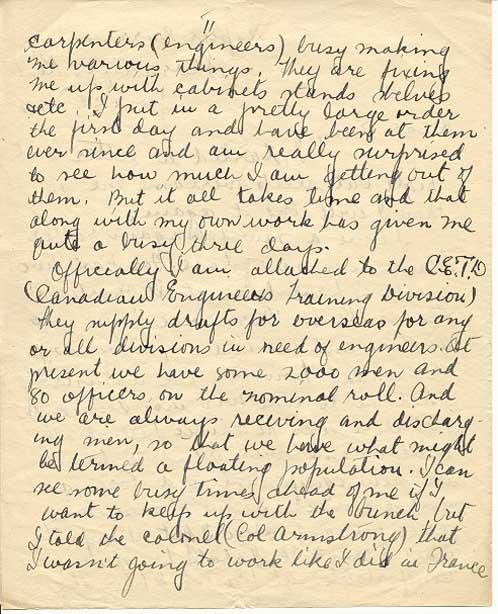 II
carpenters (engineers) busy making
me various things. They are fixing
me up with cabinets stands shelves
etc. I put in a pretty large order
the first day and have been at them
ever since and am really surprised
to see how much I am getting out of
them. But it all takes time and that
along with my own work has given me
quite a busy three days.
Officially I am attached to the C.E.T.D
(Canadian Engineers Training Division)
they supply drafts for overseas for any
or all divisions in need of engineers. At
present we have some 2000 men and
80 officers on the nominal roll. And
we are always receiving and discharg-
ing men, so that we have what might
be termed a floating population. I can
see some busy times ahead of me if I
want to keep up with the bunch but
I told the colonel (Col Armstrong) that
I wasn't going to work like I did in France